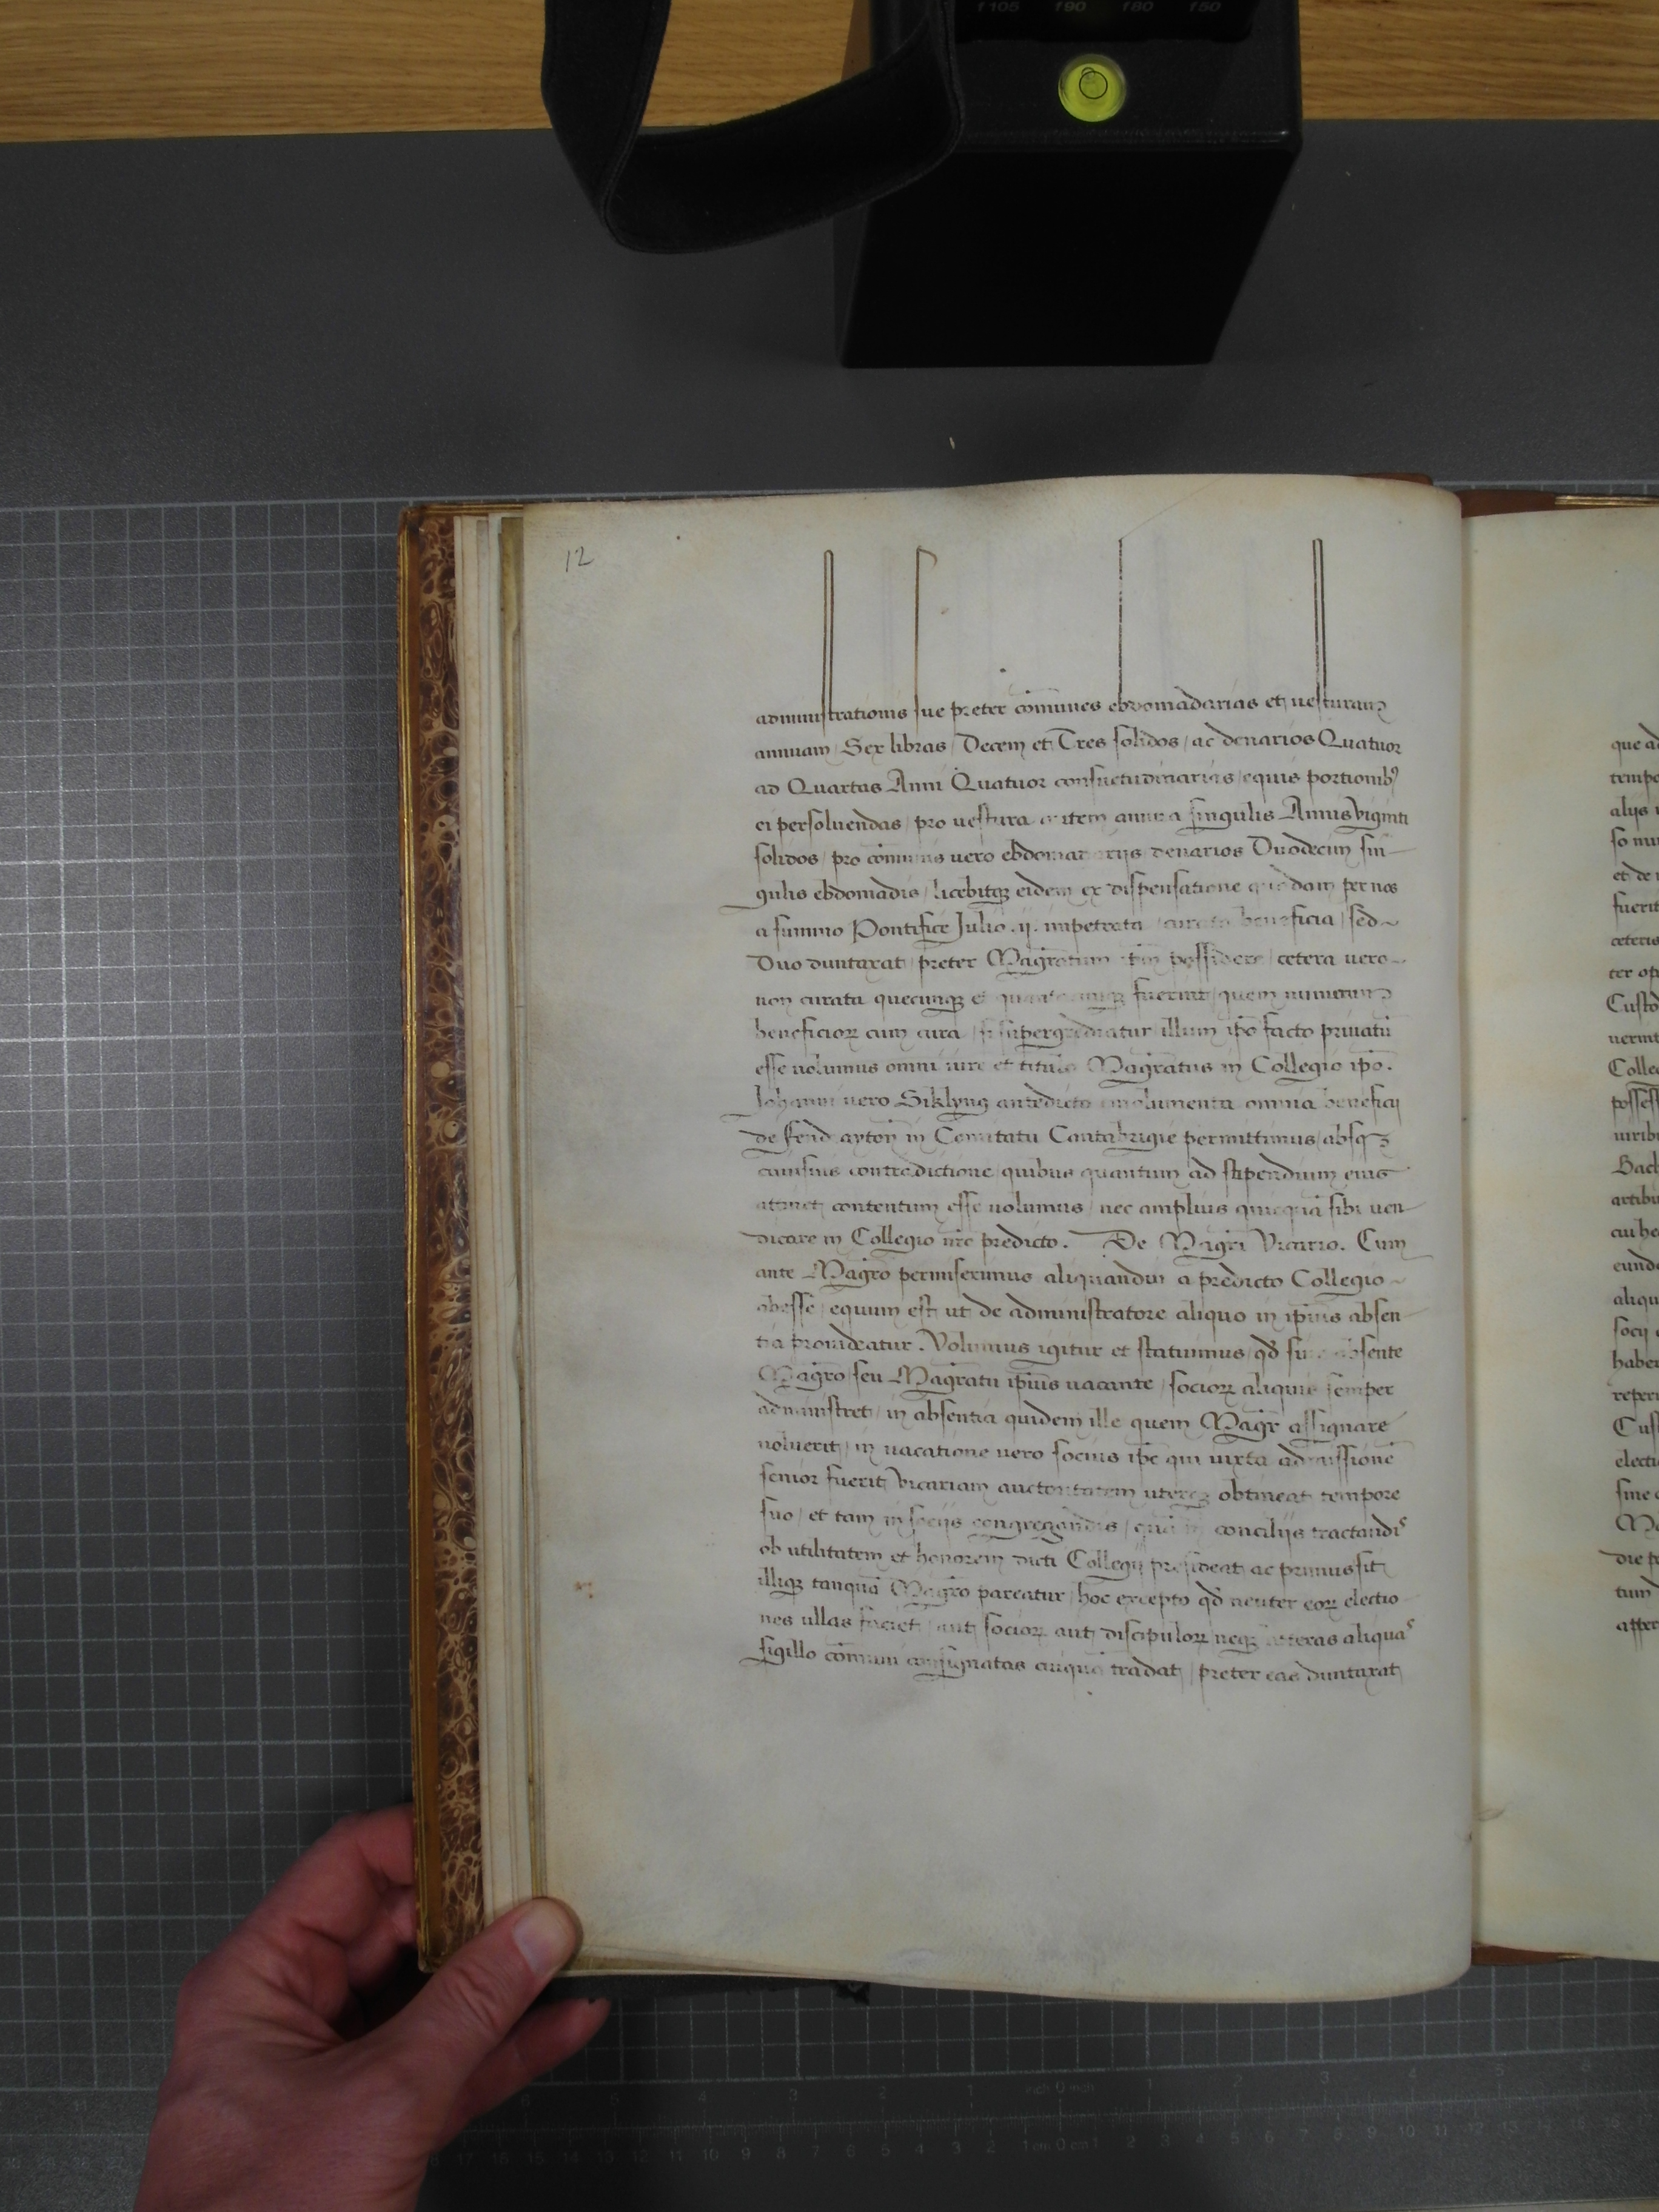 f105 f90 f80 f50
12
administrationis sue preter cōmunes ebdomadarias et vesturam
annuam / Sex libras / Decem et Tres solidos / ac denarios Quatuor
ad Quartas Anni Quatuor consuetudinarias / equis portionibꝫ
ei persoluendas / pro vestura autem annua singulis Annis viginti
solidos / pro cōmunis vero ebdomadarijs denarios Duodecim sin
gulis ebdomadis / licebitqꝫ eidem ex dispensatione quadam per nos
a summo Pontifice Julio .ij. impetrata / curata beneficia / sed
Duo duntaxat / preter Magr̄atum possidere / cetera vero
non curata quecunqꝫ et fuerint / quem numerum
beneficioꝝ cum cura / si supergrediatur illum ip̄o facto priuatū
esse volumus omni iure et titulo Magr̄atus in Collegio ip̄o.
Johanni vero Siklyng antedicto emolumenta omnia beneficij
de ayton in Comitatu Cantabrigie permittimus / absqꝫ
cuiusuis contradictione / quibus quantum ad stipendium eius
atinet contentum esse volumus / nec amplius quicquā sibi ven
dicare in Collegio nr̄o predicto. De Magr̄i Vicario. Cum
ante Magr̄o permiserimus aliquandiu a predicto Collegio
abesse / equum est ut de administratore aliquo in ip̄ius absen
tia prouideatur. Volumus igitur et statuimus / qd̄ absente
Magr̄o / seu Magr̄atu ip̄ius vacante / socioꝝ aliquis semper
administret / in absentia quidem ille quem Magr̄ assignare
voluerit / in vacatione vero socius ip̄e qui iuxta admissionē
senior fuerit / vicariam auctoritatem uterqꝫ obtineat tempore
suo / et tam in socijs congregandis / quā in concilijs tractandis
ob utilitatem et honorem dicti Collegij presideat ac primus sit
illiqꝫ tanquā Magr̄o pareatur / hoc excepto qd̄ neuter eoꝝ electio
nes ullas faciet / aut socioꝝ aut discipuloꝝ / neqꝫ litteras aliquas
sigillo cōmuni consignatas cuiquā tradat / preter eas duntaxat
que ad
temp
alijs
so nu
et de
fuerit
ceteris
ter
Custo
uerint
Colleg
possess
uirib
Bac
artibu
cui he
eund
aliqu
socij
haber
reperi
Cus
electi
sine
Ma
die p
tum
affer